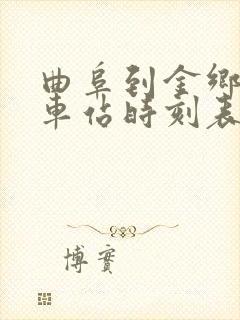 曲阜到金鄉
車佔時刻表
博賓